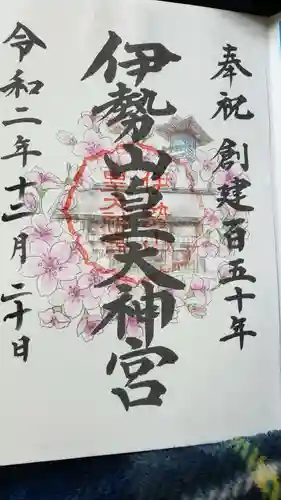 奉祝創建百五十年
伊勢山皇大神宮
令和二年十一月二十日